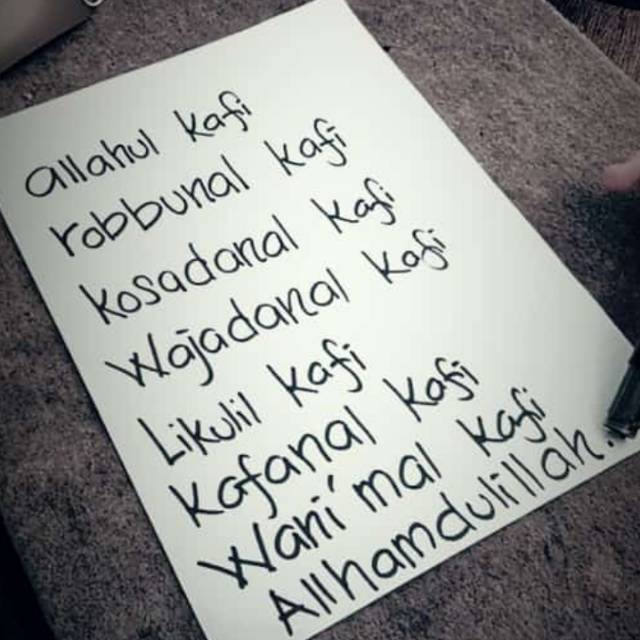 allahul kafi
robbunal kafi
kosadanal kafi
Wajadanal kafi
Likulil kafi
Kafanal kafi
Wani'mal kafi
Allhamdulillah.